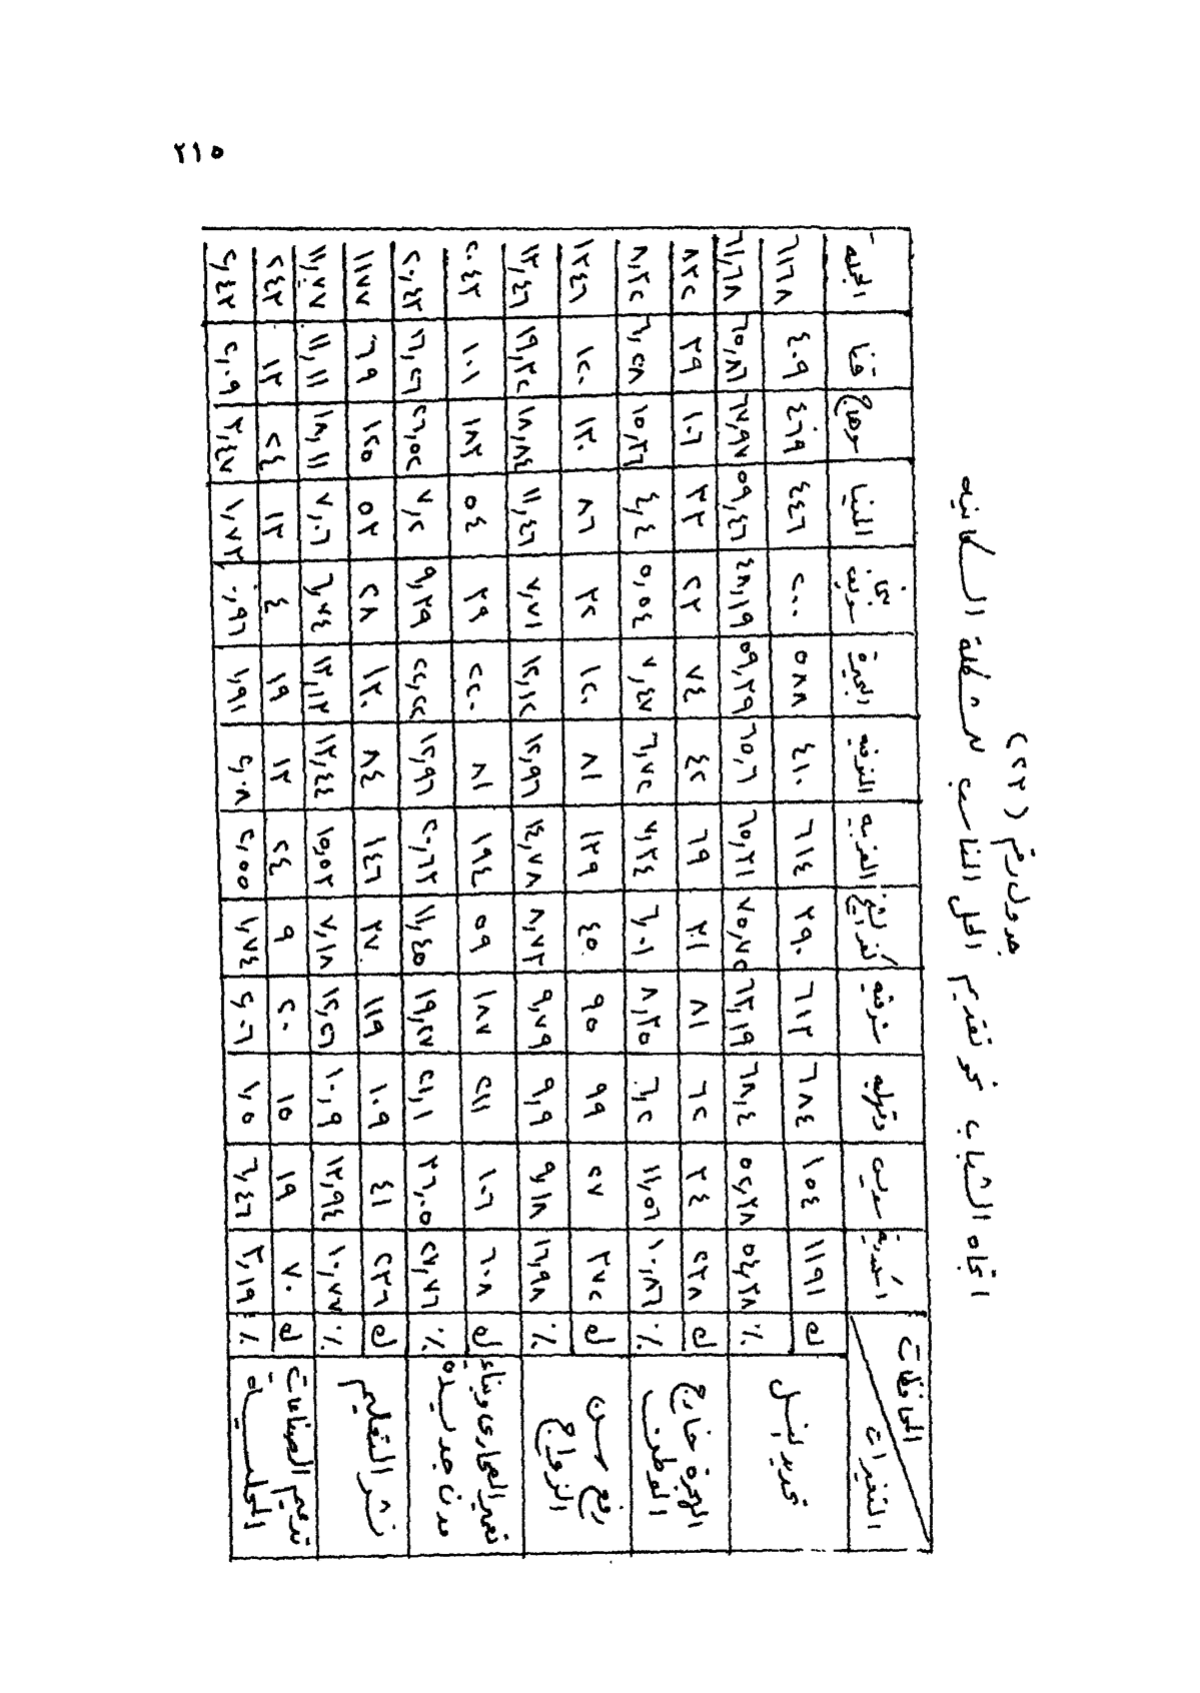 ٢١٥
جدول رقم (٢٣)
اتجاه الشباب نحو تقديم الحل المناسب للمشكلة السكانيه
المحافظات المتغيرات اسكندرية سويس دقهليه شرقيه كفر الشيخ الغربيه المنوفيه البحيرة بنى سويف المنيا سوهاج قنا الجمله
تحديد النسل ك ١١٩١ ١٥٤ ٦٨٤ ٦١٣ ٣٩٠ ٦١٤ ٤١٠ ٥٨٨ ٢٠٠ ٤٤٦ ٤٦٩ ٤٠٩ ٦١٦٨
٪ ٥٤,٣٨ ٥٢,٣٨ ٦٨,٤ ٦٣,١٩ ٧٥,٧٢ ٦٥,٣١ ٦٥,٦ ٥٩,٣٩ ٤٨,١٩ ٥٩,٤٦ ٦٧,٩٧ ٦٥,٨٦ ٦١,٦٨
الهجرة خارج الوطن ك ٢٣٨ ٣٤ ٦٢ ٨١ ٣١ ٦٩ ٤٢ ٧٤ ٢٣ ٣٣ ١٠٦ ٣٩ ٨٣٢
٪ ١٠,٨٦ ١١,٥٦ ٦,٢ ٨,٣٥ ٦,٠١ ٧,٣٤ ٦,٧٢ ٧,٤٧ ٥,٥٤ ٤,٤ ١٥,٣٦ ٦,٢٨ ٨,٣٢
رفع سن الزواج ك ٣٧٢ ٢٧ ٩٩ ٩٥ ٤٥ ١٣٩ ٨١ ١٢٠ ٣٢ ٨٦ ١٣٠ ١٢٠ ١٣٤٦
٪ ١٦,٩٨ ٩,١٨ ٩,٩ ٩,٧٩ ٨,٧٣ ١٤,٧٨ ١٢,٩٦ ١٢,١٢ ٧,٧١ ١١,٤٦ ١٨,٨٤ ١٩,٣٢ ١٣,٤٦
تعمير الصحارى وبناء مدن جديدة ك ٦٠٨ ١٠٦ ٢١١ ١٨٧ ٥٩ ١٩٤ ٨١ ٢٢٠ ٣٩ ٥٤ ١٨٣ ١٠١ ٢٠٤٣
٪ ٢٧,٧٦ ٣٦,٠٥ ٢١,١ ١٩,٢٧ ١١,٤٥ ٢٠,٦٣ ١٢,٩٦ ٢٢,٢٢ ٩,٣٩ ٧,٢ ٢٦,٥٢ ١٦,٢٦ ٢٠,٤٣
نشر التعليم ك ٢٣٦ ٤١ ١٠٩ ١١٩ ٣٧ ١٤٦ ٨٤ ١٣٠ ٢٨ ٥٣ ١٢٥ ٦٩ ١١٧٧
٪ ١٠,٧٧ ١٣,٩٤ ١٠,٩ ١٢,٢٦ ٧,١٨ ١٥,٥٣ ١٣,٤٤ ١٣,١٣ ٦,٧٤ ٧,٠٦ ١٨,١١ ١١,١١ ١١,٧٧
تدعيم الصناعات المحليـــة ك ٧٠ ١٩ ١٥ ٢٠ ٩ ٢٤ ١٣ ١٩ ٤ ١٣ ٢٤ ١٣ ٢٤٣
٪ ٣,١٩ ٦,٤٦ ١,٥ ٢,٠٦ ١,٧٤ ٢,٥٥ ٢,٠٨ ١,٩١ ٠,٩٦ ١,٧٣ ٣,٤٧ ٢,٠٩ ٢,٤٣